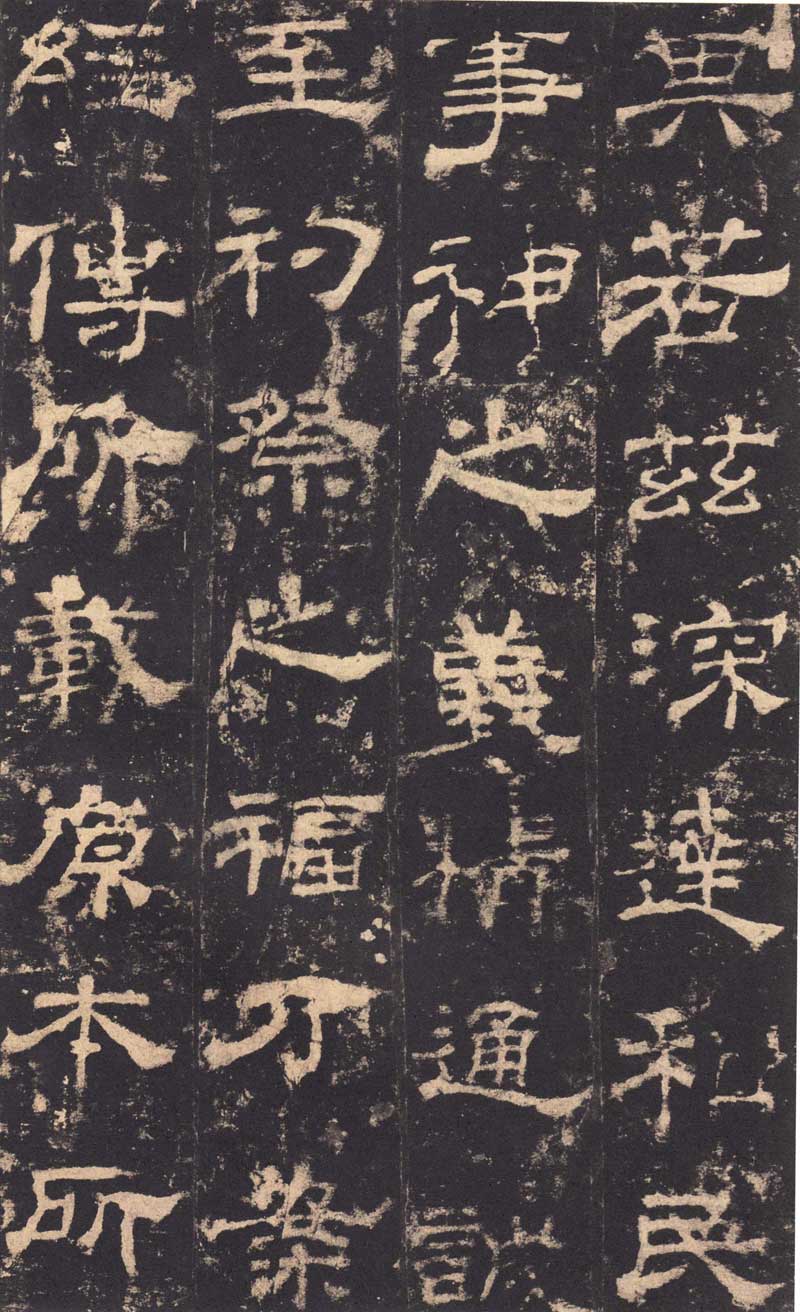 其若茲深達和民
事神之義精通誠
至礿祭之福乃案
經傳所載原本所